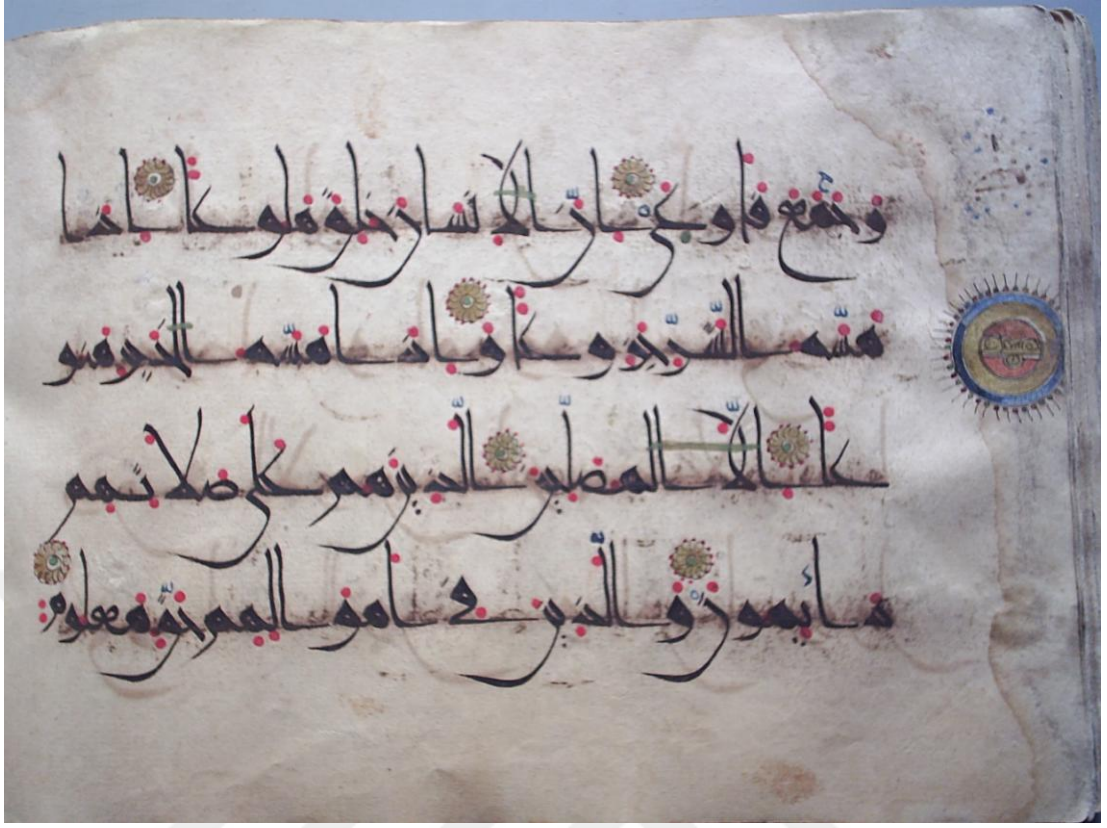 وجمع فاوعى ان الانسان خلق هلوعا اذا
مسه الشر جزوعا واذا مسه الخير منو
عا الا المصلين الذين هم على صلاتهم
دائمون والذين في اموالهم حق معلوم